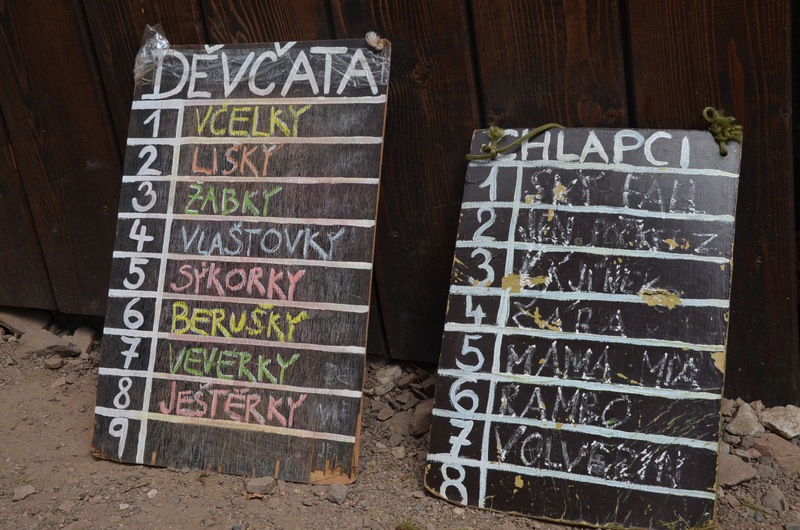 DĚVČATA
1 VČELKY
2 LIŠKY
3 ŽABKY
4 VLAŠTOVKY
5 SÝKORKY
6 BERUŠKY
7 VEVERKY
8 JEŠTĚRKY
9
CHLAPCI
1
2
3
4
5 MAMA MIA
6 RAMBO
7 VOLVERIN
8